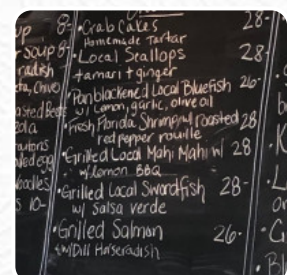 8-
Soup 8-
radish
Chive
10-
• Crab Cakes 28-
Homemade Tartar
• Local Scallops 28-
tamari + ginger
• Pan blackened Local Bluefish 26-
w/ Lemon, garlic, olive oil
• Fresh Florida Shrimp roasted 28
red pepper rouille
• Grilled Local Mahi Mahi w/ 28
w/ lemon BBQ
• Grilled Local Swordfish 28-
w/ Salsa verde
• Grilled Salmon 26-
w/ Dill Horseradish